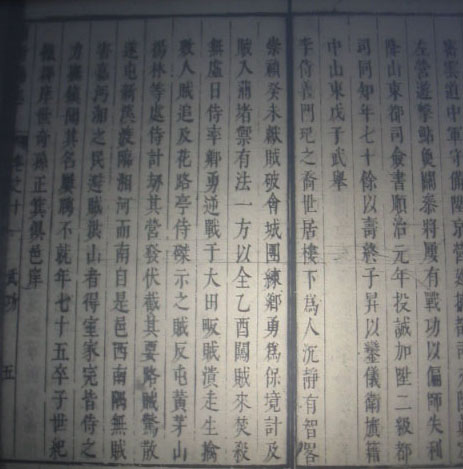 密雲道中軍守備陞京營遊擊
左營遊擊關叅將屢有戰功以偏師失利
降山東都司僉書順治元年投誠加陞二級都
司同知年七十餘以壽終子昇以鑾儀衛旗籍
中山東戊子武舉
李侍善門之裔世居樓下為人沉靜有智畧
崇禎癸未獻賊破會城團練鄉勇為保境計及
賊入堵禦有法一方以全乙酉闖賊來焚殺
無虛日侍率鄉勇逆戰于大田畈賊潰走生擒
數人賊追及花路亭侍磔示之賊反屯黃茅山
湯林等處侍計刼其營發伏截其要路賊驚散
遂屯新溪渡臨湘河而南自是邑西南隅無賊
害臨沔湘之民避賊山者得室家完皆侍之
力鎮聞其名屢聘不就年七十五卒子世紀
庠世奇孫正箕俱邑庠
卷之十 武功 五